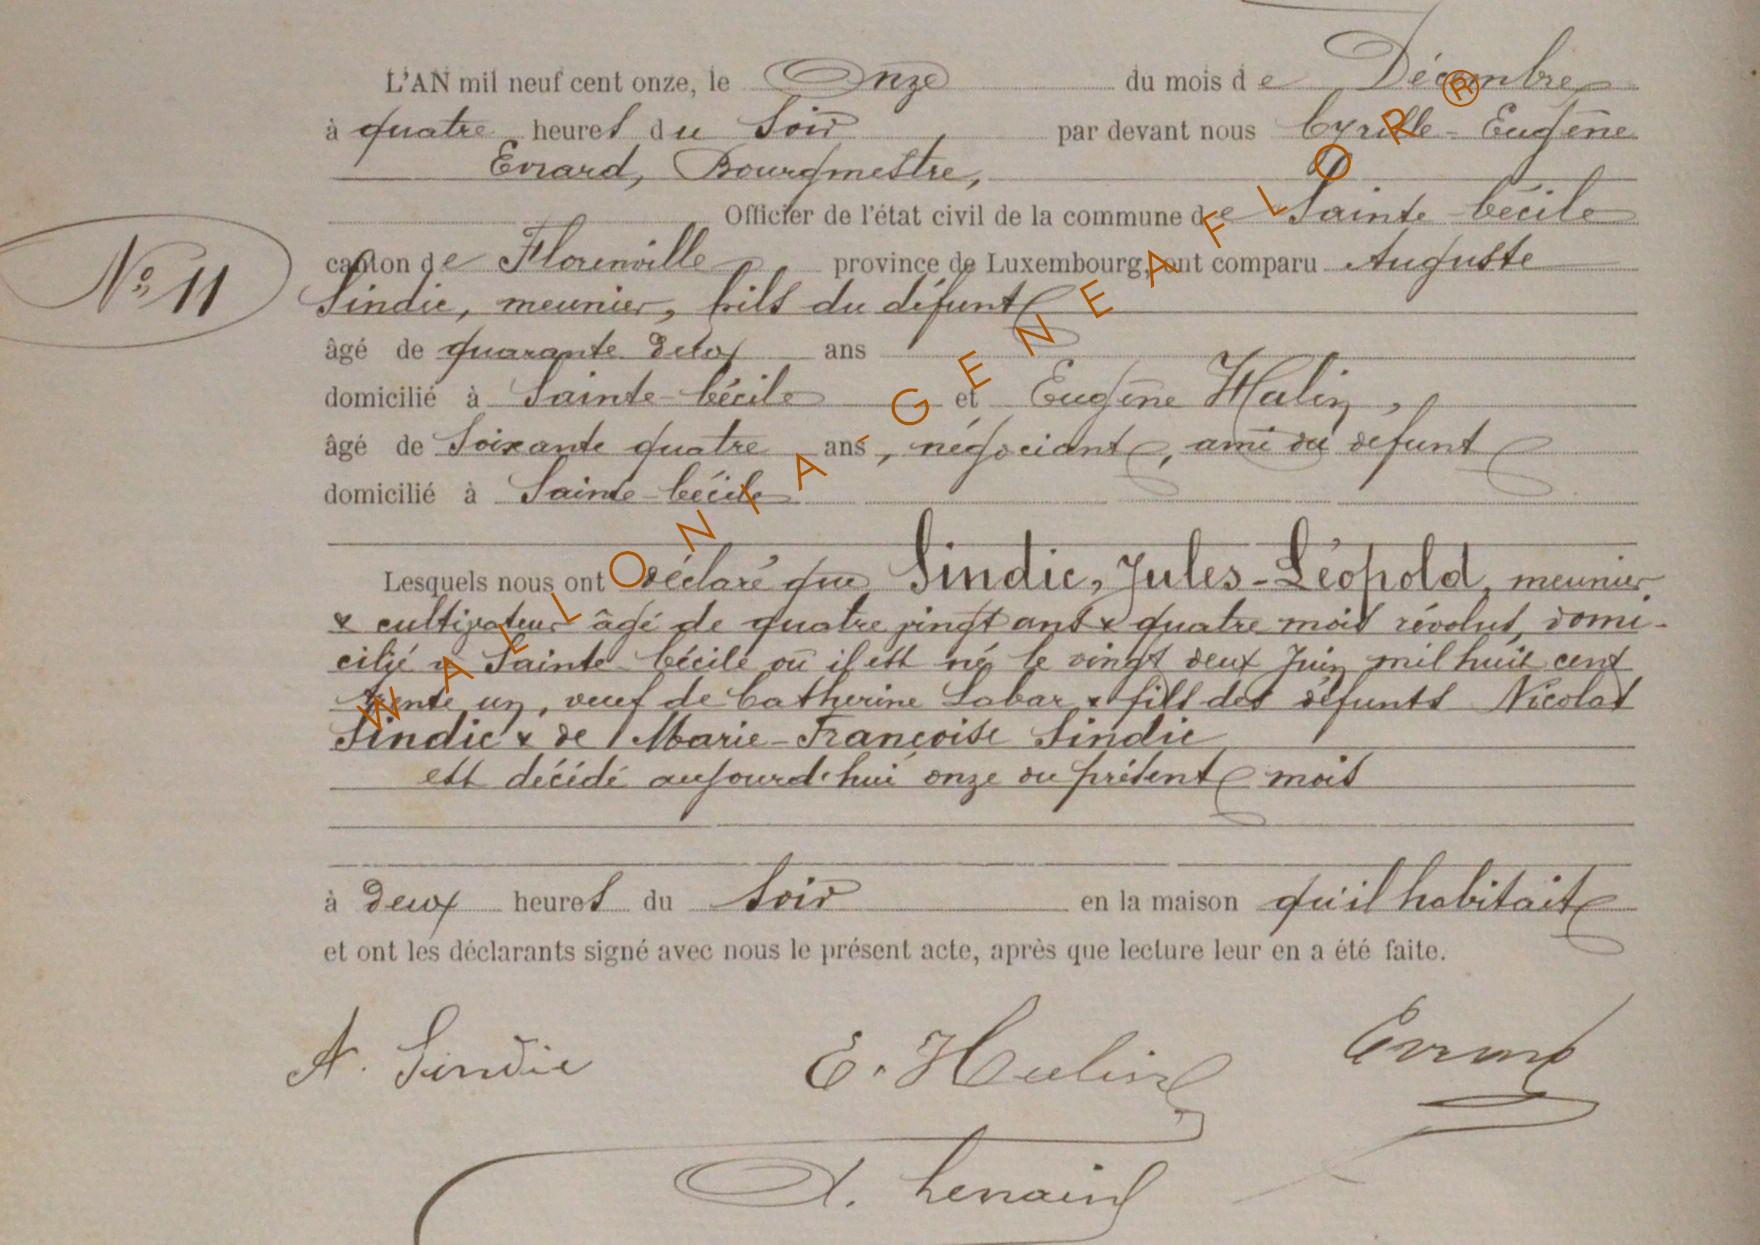 L'AN mil neuf cent onze, le Onze du mois de Décembre
à quatre heures du Soir, par devant nous Cyrille-Eugène
Evrard, Bourgmestre,
Officier de l'état civil de la commune de Sainte-Cécile
N° 11
canton de Florenville province de Luxembourg, ont comparu Auguste
Sindic, meunier, fils du défunt
âgé de quarante deux ans
domicilié à Sainte-Cécile et Eugène Halin,
âgé de Soixante quatre ans, négociant, ami du défunt
domicilié à Sainte-Cécile
Lesquels nous ont déclaré que Sindic, Jules-Léopold, meunier
& cultivateur âgé de quatre vingt ans & quatre mois révolus, domi-
cilié à Sainte-Cécile où il est né le vingt deux Juin mil huit cent
trente un, veuf de Catherine Labar & fils des défunts Nicolas
Sindic & de Marie-Françoise Sindic
est décédé aujourd'hui onze du présent mois
à deux heures du Soir en la maison qu'il habitait
et ont les déclarants signé avec nous le présent acte, après que lecture leur en a été faite.
A. Sindic E. Halin Evrard
Lenain
WALLONIA-GENEAFLOR®